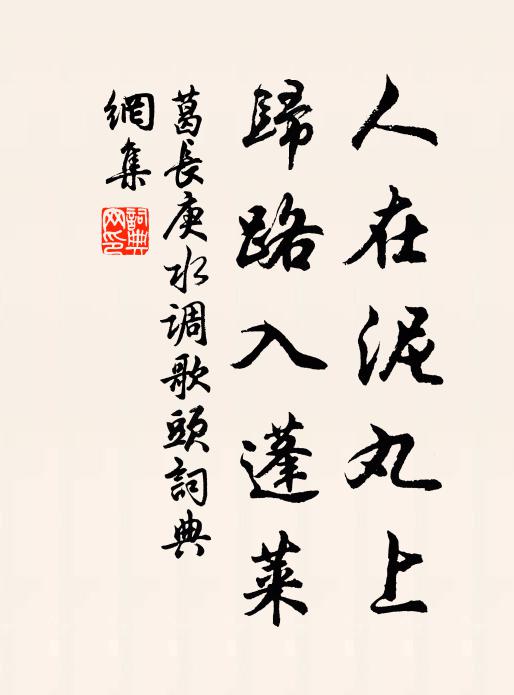 人在泥丸上
歸路入蓬萊
葛長庚水调歌頭詞典
網集
詞典网印